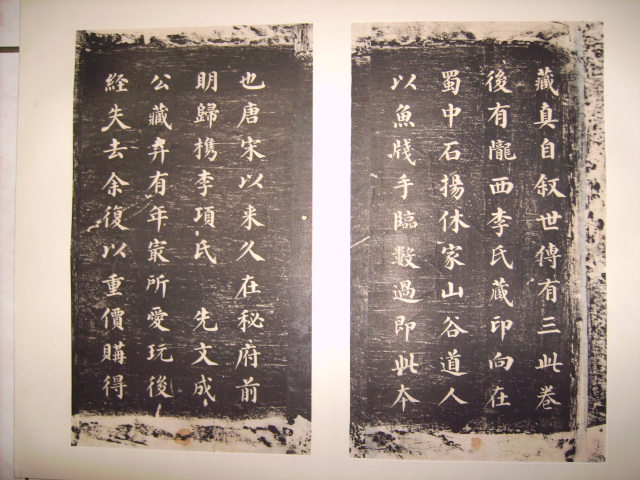 藏真自叙世傳有三此卷
後有隴西李氏藏印向在
蜀中石揚休家山谷道人
以魚牋手臨數過即此本
也唐宋以来久在秘府前
明歸檇李項氏　先文成
公藏弆有年㝡所愛玩後
経失去余復以重價購得